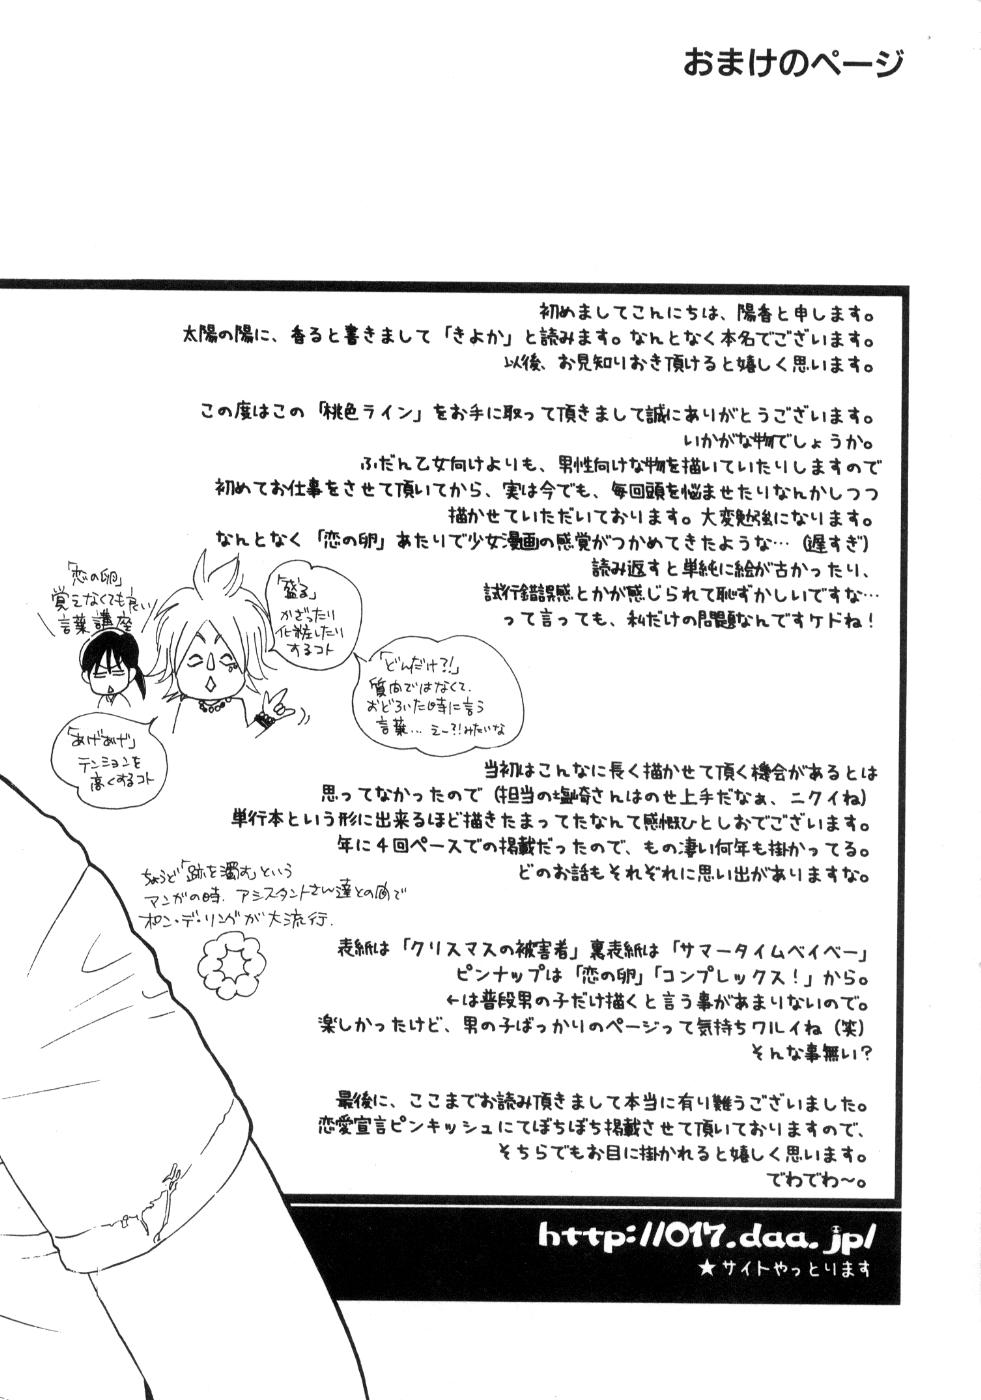 おまけのページ
初めましてこんにちは、陽香と申します。
太陽の陽に、香ると書きまして「きよか」と読みます。なんとなく本名でございます。
以後、お見知りおき頂けると嬉しく思います。
この度はこの「桃色ライン」をお手に取って頂きまして誠にありがとうございます。
いかがな物でしょうか。
ふだん乙女向けよりも、男性向けな物を描いていたりしますので
初めてお仕事をさせて頂いてから、実は今でも、毎回頭を悩ませたりなんかしつつ
描かせていただいております。大変勉強になります。
なんとなく「恋の卵」あたりで少女漫画の感覚がつかめてきたような…（遅すぎ）
読み返すと単純に絵が古かったり、
試行錯誤感とかが感じられて恥ずかしいですな…
って言っても、私だけの問題なんですケドね！
「恋の卵」
覚えなくても良い
言葉講座
「盛る」
かざったり
化粧したり
するコト
「どんだけ?!」
質問ではなくて、
おどろいた時に言う
言葉… えー?!みたいな
「あげあげ」
テンションを
高くするコト
当初はこんなに長く描かせて頂く機会があるとは
思ってなかったので（担当の塩崎さんはのせ上手だなぁ、ニクイね）
単行本という形に出来るほど描きたまってたなんて感慨ひとしおでございます。
年に４回ペースでの掲載だったので、もの凄い何年も掛かってる。
どのお話もそれぞれに思い出がありますな。
ちょうど「跡を濁す」という
マンガの時、アシスタントさん達との間で
ポン・デ・リングが大流行。
表紙は「クリスマスの被害者」裏表紙は「サマータイムベイベー」
ピンナップは「恋の卵」「コンプレックス！」から。
←は普段男の子だけ描くと言う事があまりないので。
楽しかったけど、男の子ばっかりのページって気持ちワルイね（笑）
そんな事無い？
最後に、ここまでお読み頂きまして本当に有り難うございました。
恋愛宣言ピンキッシュにてぼちぼち掲載させて頂いておりますので、
そちらでもお目に掛かれると嬉しく思います。
でわでわ～。
http://017.daa.jp/
★サイトやっとります